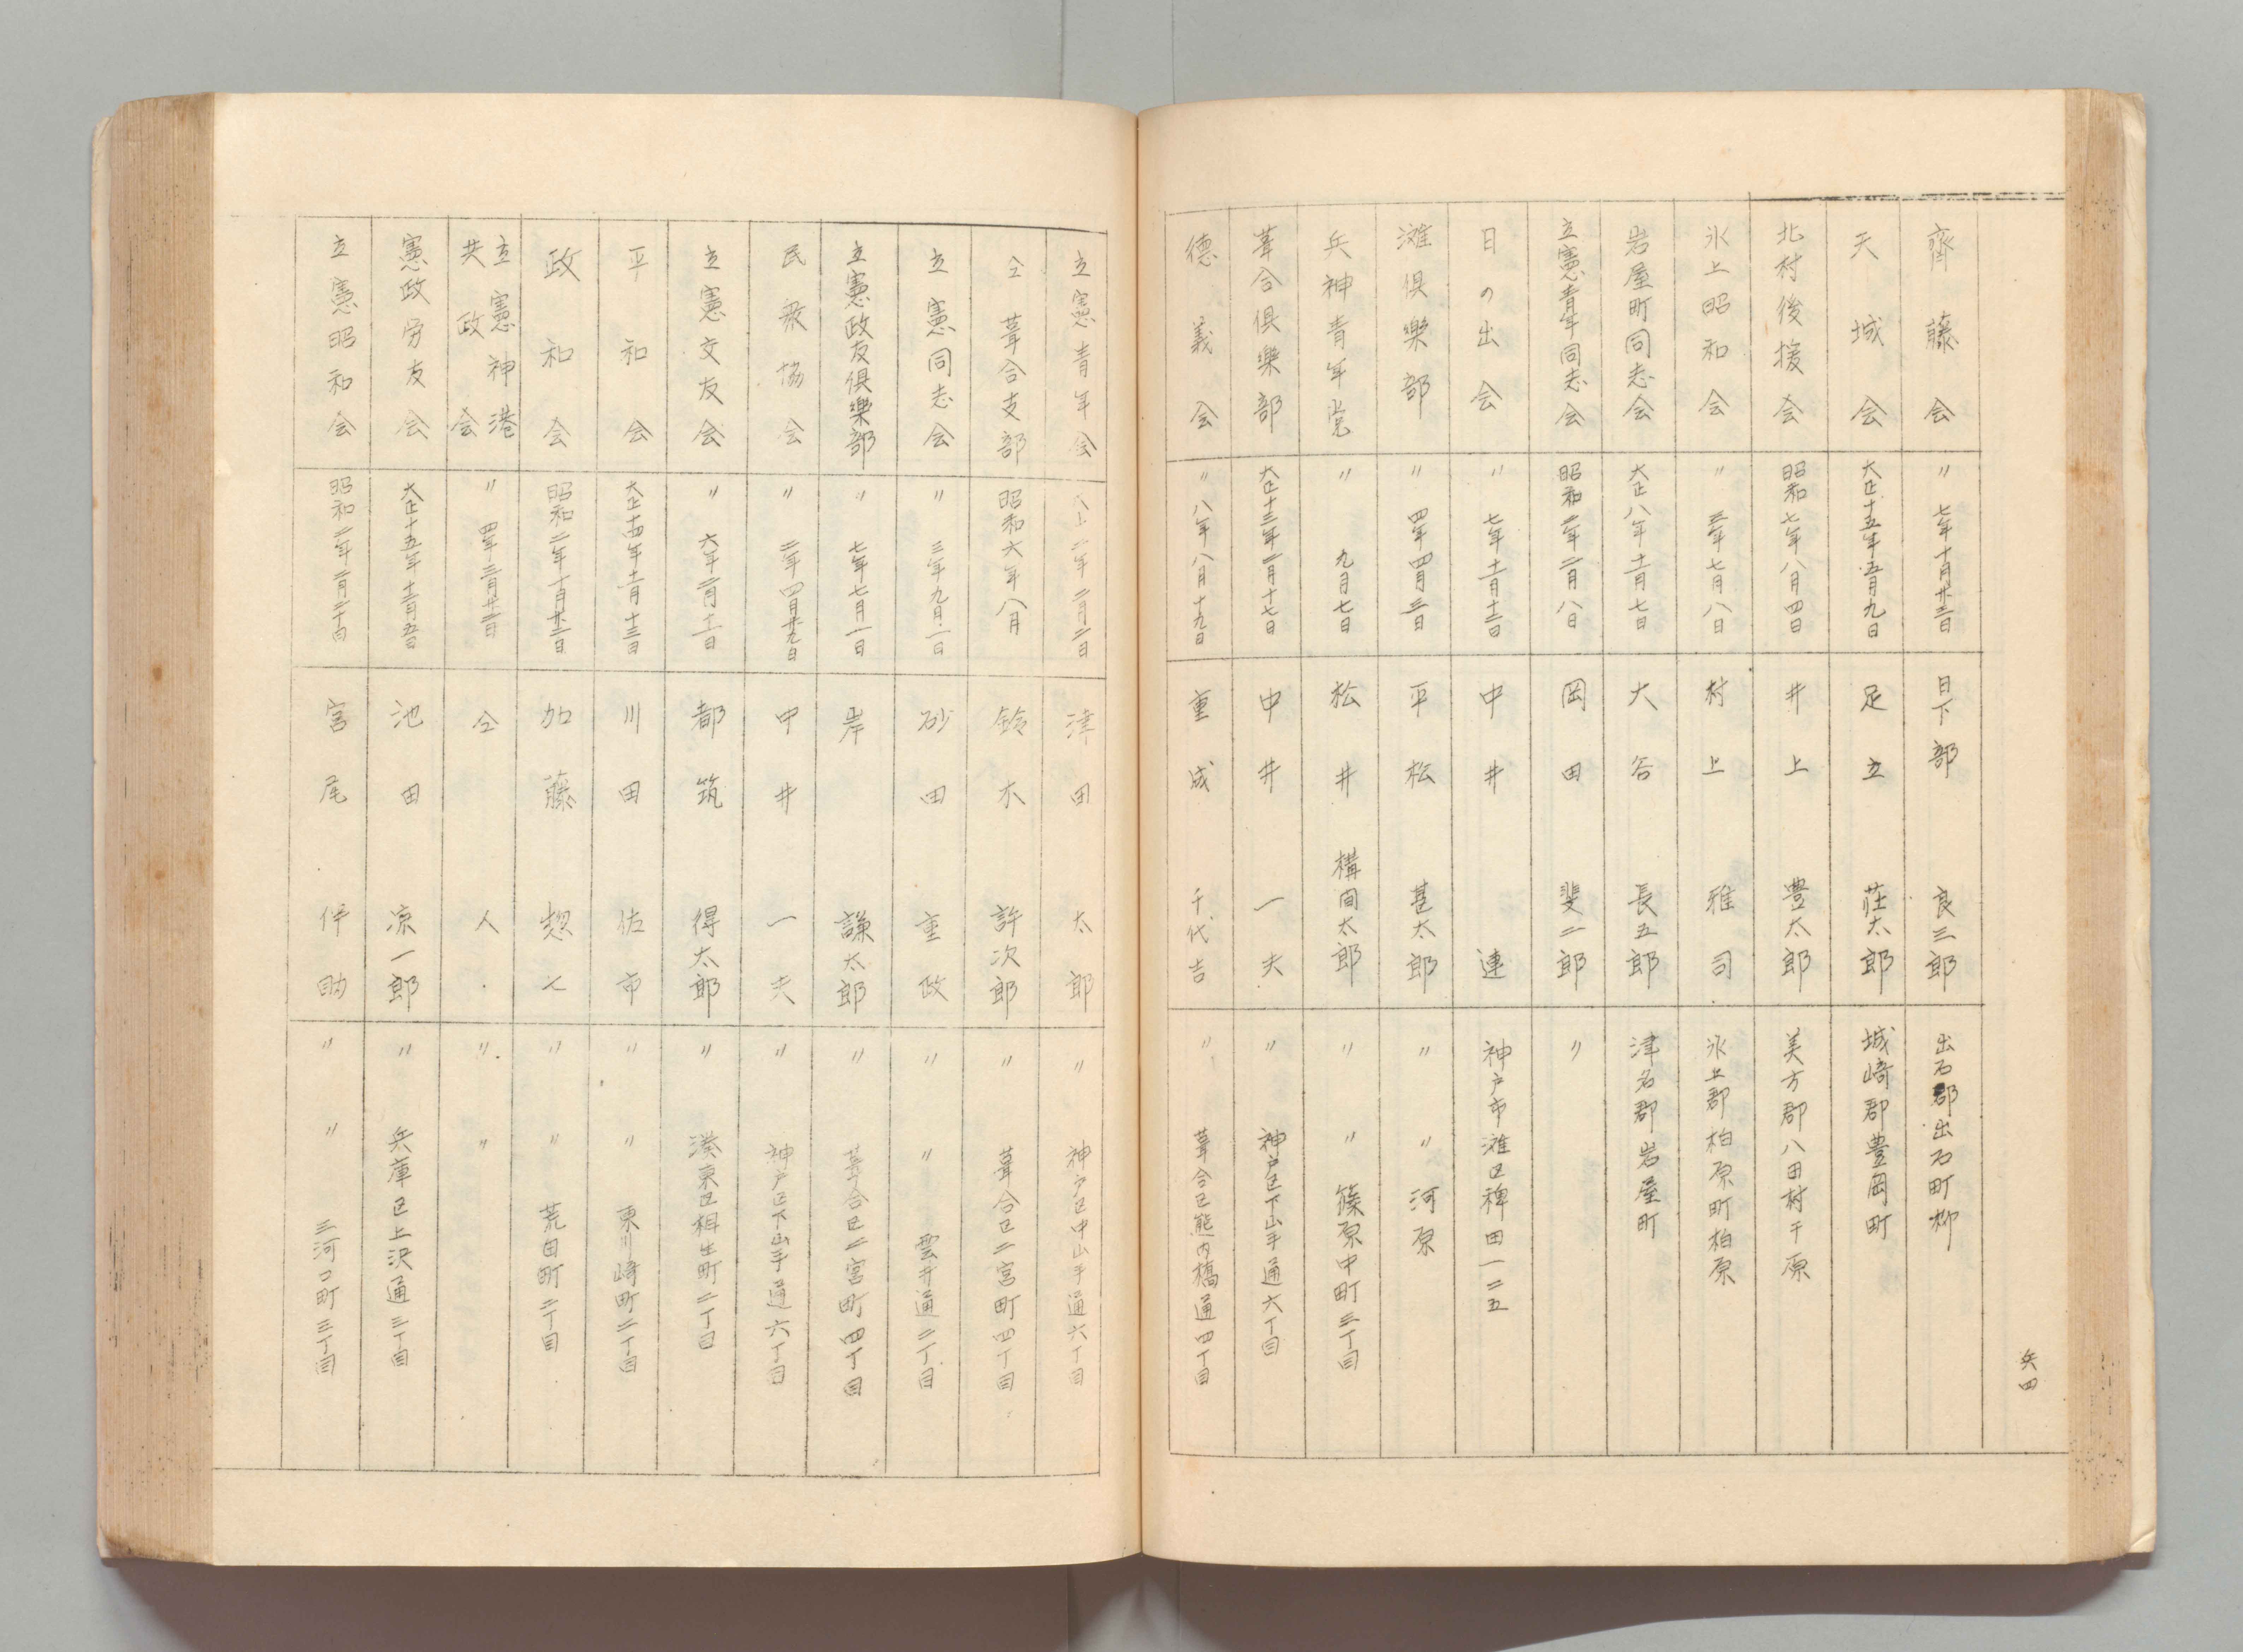 兵四
齊藤会 〃七年十月廿三日 日下部良三郎 出石郡出石町柳
天城会 大正十五年五月九日 足立荘太郎 城崎郡豊岡町
北村後援会 昭和七年八月四日 井上豊太郎 美方郡八田村千原
氷上昭和会 〃三年七月八日 村上雅司 氷上郡柏原町柏原
岩屋町同志会 大正八年十一月七日 大谷長五郎 津名郡岩屋町
立憲青年同志会 昭和二年二月八日 岡田斐二郎 〃
日の出会 〃七年十一月十二日 中井連 神戸市灘区稗田一二五
灘倶楽部 〃四年四月三日 平松甚太郎 〃〃河原
兵神青年党 〃九月七日 松井構間太郎 〃〃篠原中町三丁目
葺合倶楽部 大正十三年二月十七日 中井一夫 〃神戸区下山手通六丁目
徳義会 〃八年八月十九日 重成千代吉 〃葺合区熊内橋通四丁目
立憲青年会 二年二月二日 津田太郎 〃神戸区中山手通六丁目
仝葺合支部 昭和六年八月 鈴木許次郎 〃葺合区二宮町四丁目
立憲同志会 〃三年九月一日 砂田重政 〃〃雲井通二丁目
立憲政友倶楽部 〃七年七月一日 岸謙太郎 〃葺合区二宮町四丁目
民衆協会 〃二年四月廿九日 中井一夫 〃神戸区下山手通六丁目
立憲交友会 〃六年二月十一日 都筑得太郎 〃湊東区相生町二丁目
平和会 大正十四年十一月十三日 川田佐市 〃〃東川崎町二丁目
政和会 昭和二年十月廿二日 加藤惣七 〃〃荒田町二丁目
立憲神港共政会 〃四年三月廿二日 仝人 〃〃
憲政労友会 大正十五年十二月五日 池田凉一郎 〃兵庫区上沢通三丁目
立憲昭和会 昭和二年二月二十日 宮尾伴助 〃〃三河口町三丁目